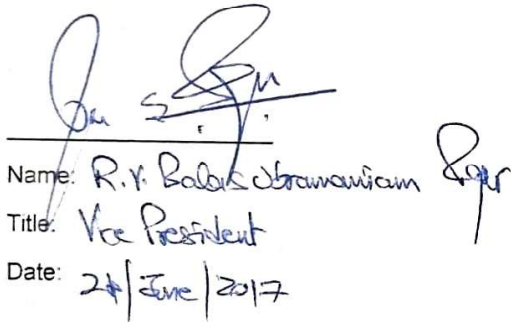 Name: R.V. Balasubramaniam
Title: Vice President
Date: /June/2017